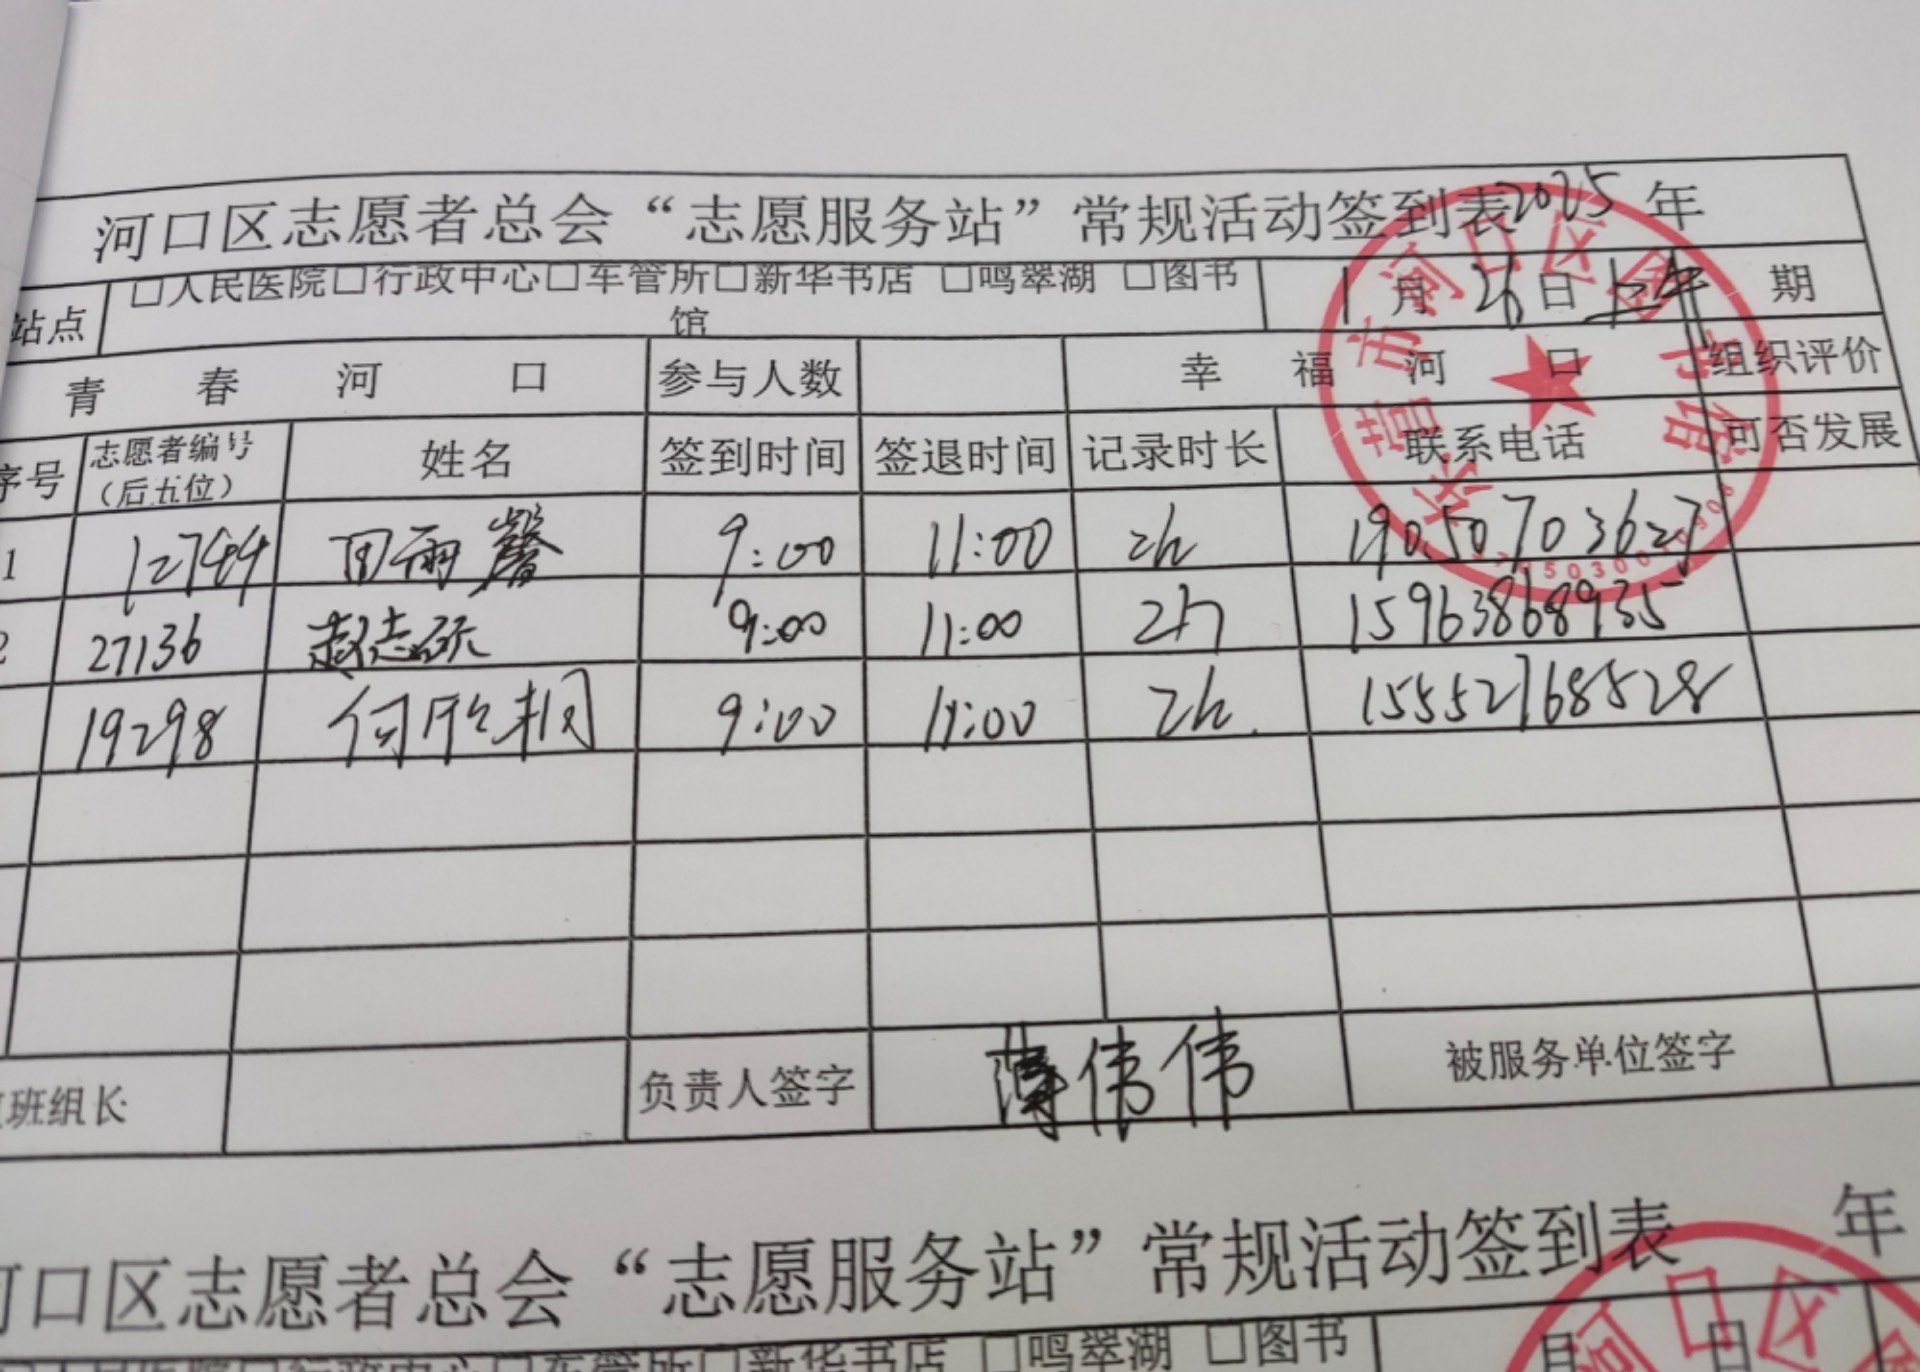 河口区志愿者总会“志愿服务站”常规活动签到表2025年
站点 □人民医院□行政中心□车管所□新华书店 □鸣翠湖 □图书馆 1月26日上午 期
青春河口 参与人数 幸福河口 组织评价
序号 志愿者编号（后五位） 姓名 签到时间 签退时间 记录时长 联系电话 可否发展
1 12744 田雨馨 9:00 11:00 2h 19050703627
2 27136 赵志硕 9:00 11:00 2h 15963868935
19298 何欣桐 9:00 11:00 2h. 15552768528
班组长 负责人签字 薄伟伟 被服务单位签字
东营市河口区图书馆
河口区志愿者总会“志愿服务站”常规活动签到表 年
□人民医院□行政中心□车管所□新华书店 □鸣翠湖 □图书 月 日
河口区